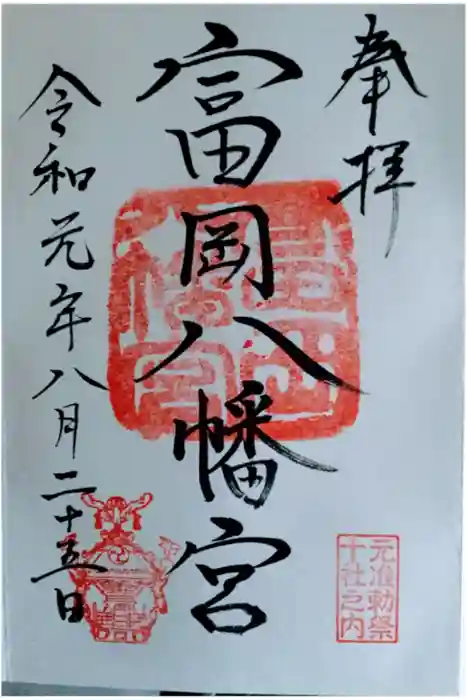 奉拝
元准勅祭
十社之内
富岡八幡宮
令和元年八月二十五日